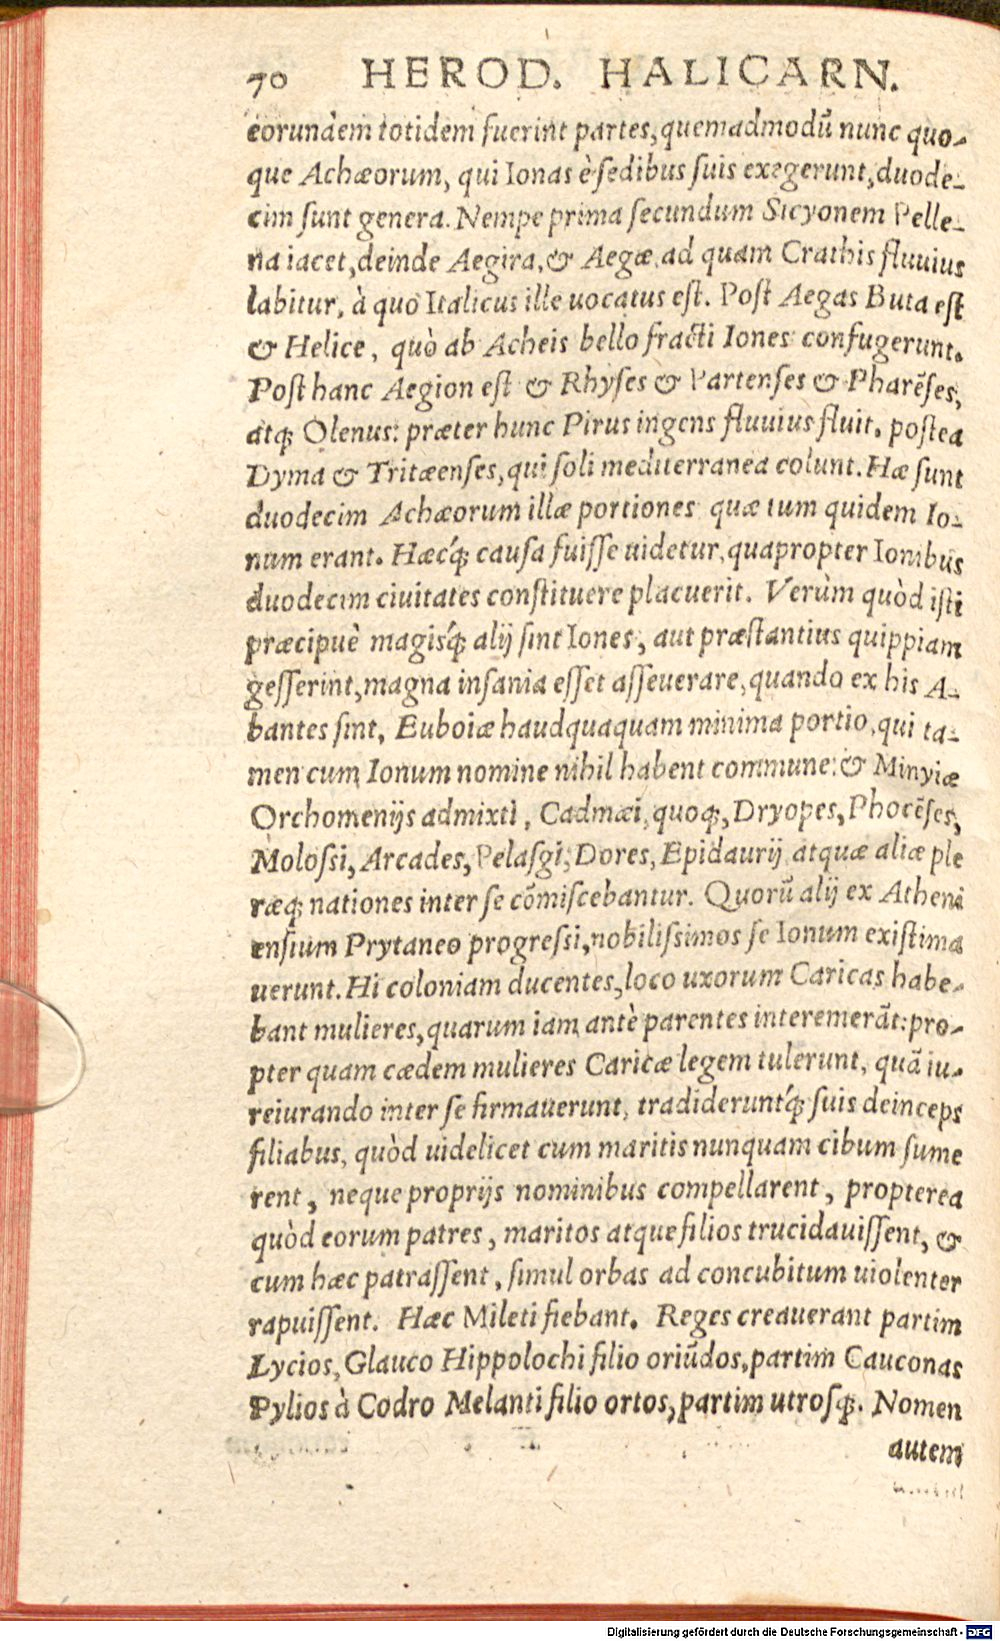 70 HEROD. HALICARN.
eorundem totidem fuerint partes, quemadmodũ nunc quo-
que Achæorum, qui Ionas è sedibus suis exegerunt, duode-
cim sunt genera. Nempe prima secundum Sicyonem Pelle-
na iacet, deinde Aegira, & Aegæ, ad quam Crathis fluuius
labitur, à quo Italicus ille uocatus est. Post Aegas Buta est
& Helice, quò ab Acheis bello fracti Iones confugerunt.
Post hanc Aegion est & Rhyses & Partenses & Pharẽses,
atq; Olenus: præter hunc Pirus ingens fluuius fluit. postea
Dyma & Tritæenses, qui soli mediterranea colunt. Hæ sunt
duodecim Achæorum illæ portiones quæ tum quidem Io-
num erant. Hæcq́; causa fuisse uidetur, quapropter Ionibus
duodecim ciuitates constituere placuerit. Verùm quòd isti
præcipuè magisq́; alij sint Iones, aut præstantius quippiam
gesserint, magna insania esset asseuerare, quando ex his A-
bantes sint, Euboiæ haudquaquam minima portio, qui ta-
men cum Ionum nomine nihil habent commune: & Minyiæ
Orchomenijs admixti, Cadmæi, quoq;, Dryopes, Phocẽses,
Molossi, Arcades, Pelasgi, Dores, Epidaurij atquæ aliæ ple
ræq; nationes inter se cõmiscebantur. Quorũ alij ex Atheni
ensium Prytaneo progressi, nobilissimos se Ionum existima
uerunt. Hi coloniam ducentes, loco uxorum Caricas habe-
bant mulieres, quarum iam antè parentes interemerãt: pro-
pter quam cædem mulieres Caricæ legem tulerunt, quã iu-
reiurando inter se firmauerunt, tradideruntq́; suis deinceps
filiabus, quòd uidelicet cum maritis nunquam cibum sume
rent, neque proprijs nominibus compellarent, propterea
quòd eorum patres, maritos atque filios trucidauissent, &
cum hæc patrassent, simul orbas ad concubitum uiolenter
rapuissent. Hæc Mileti fiebant. Reges creauerant partim
Lycios, Glauco Hippolochi filio oriũdos, partim Cauconas
Pylios à Codro Melanti filio ortos, partim utrosq;. Nomen
autem
Digitalisierung gefördert durch die Deutsche Forschungsgemeinschaft - DFG